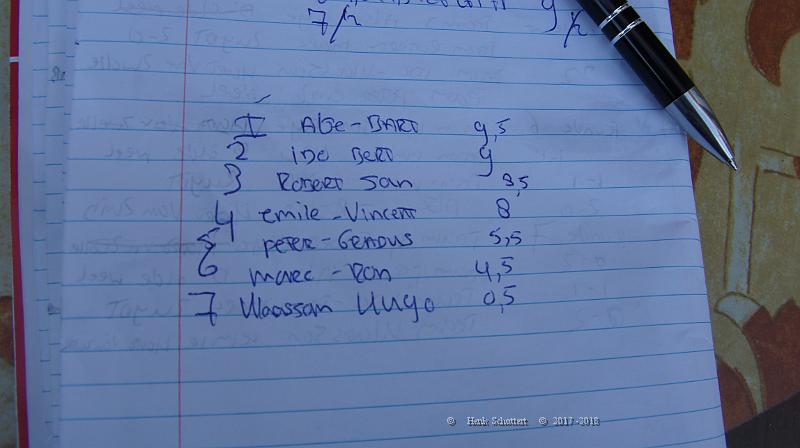 7/2
9/2
1 ABe-BART 9,5
2 iDo BERT 9
3 ROBERT San 8,5
4 emile-Vincent 8
5 peter-Genous 5,5
6 marc-Ron 4,5
7 Waassam Hugo 0,5
© Henk Schuttert © 2017-2018